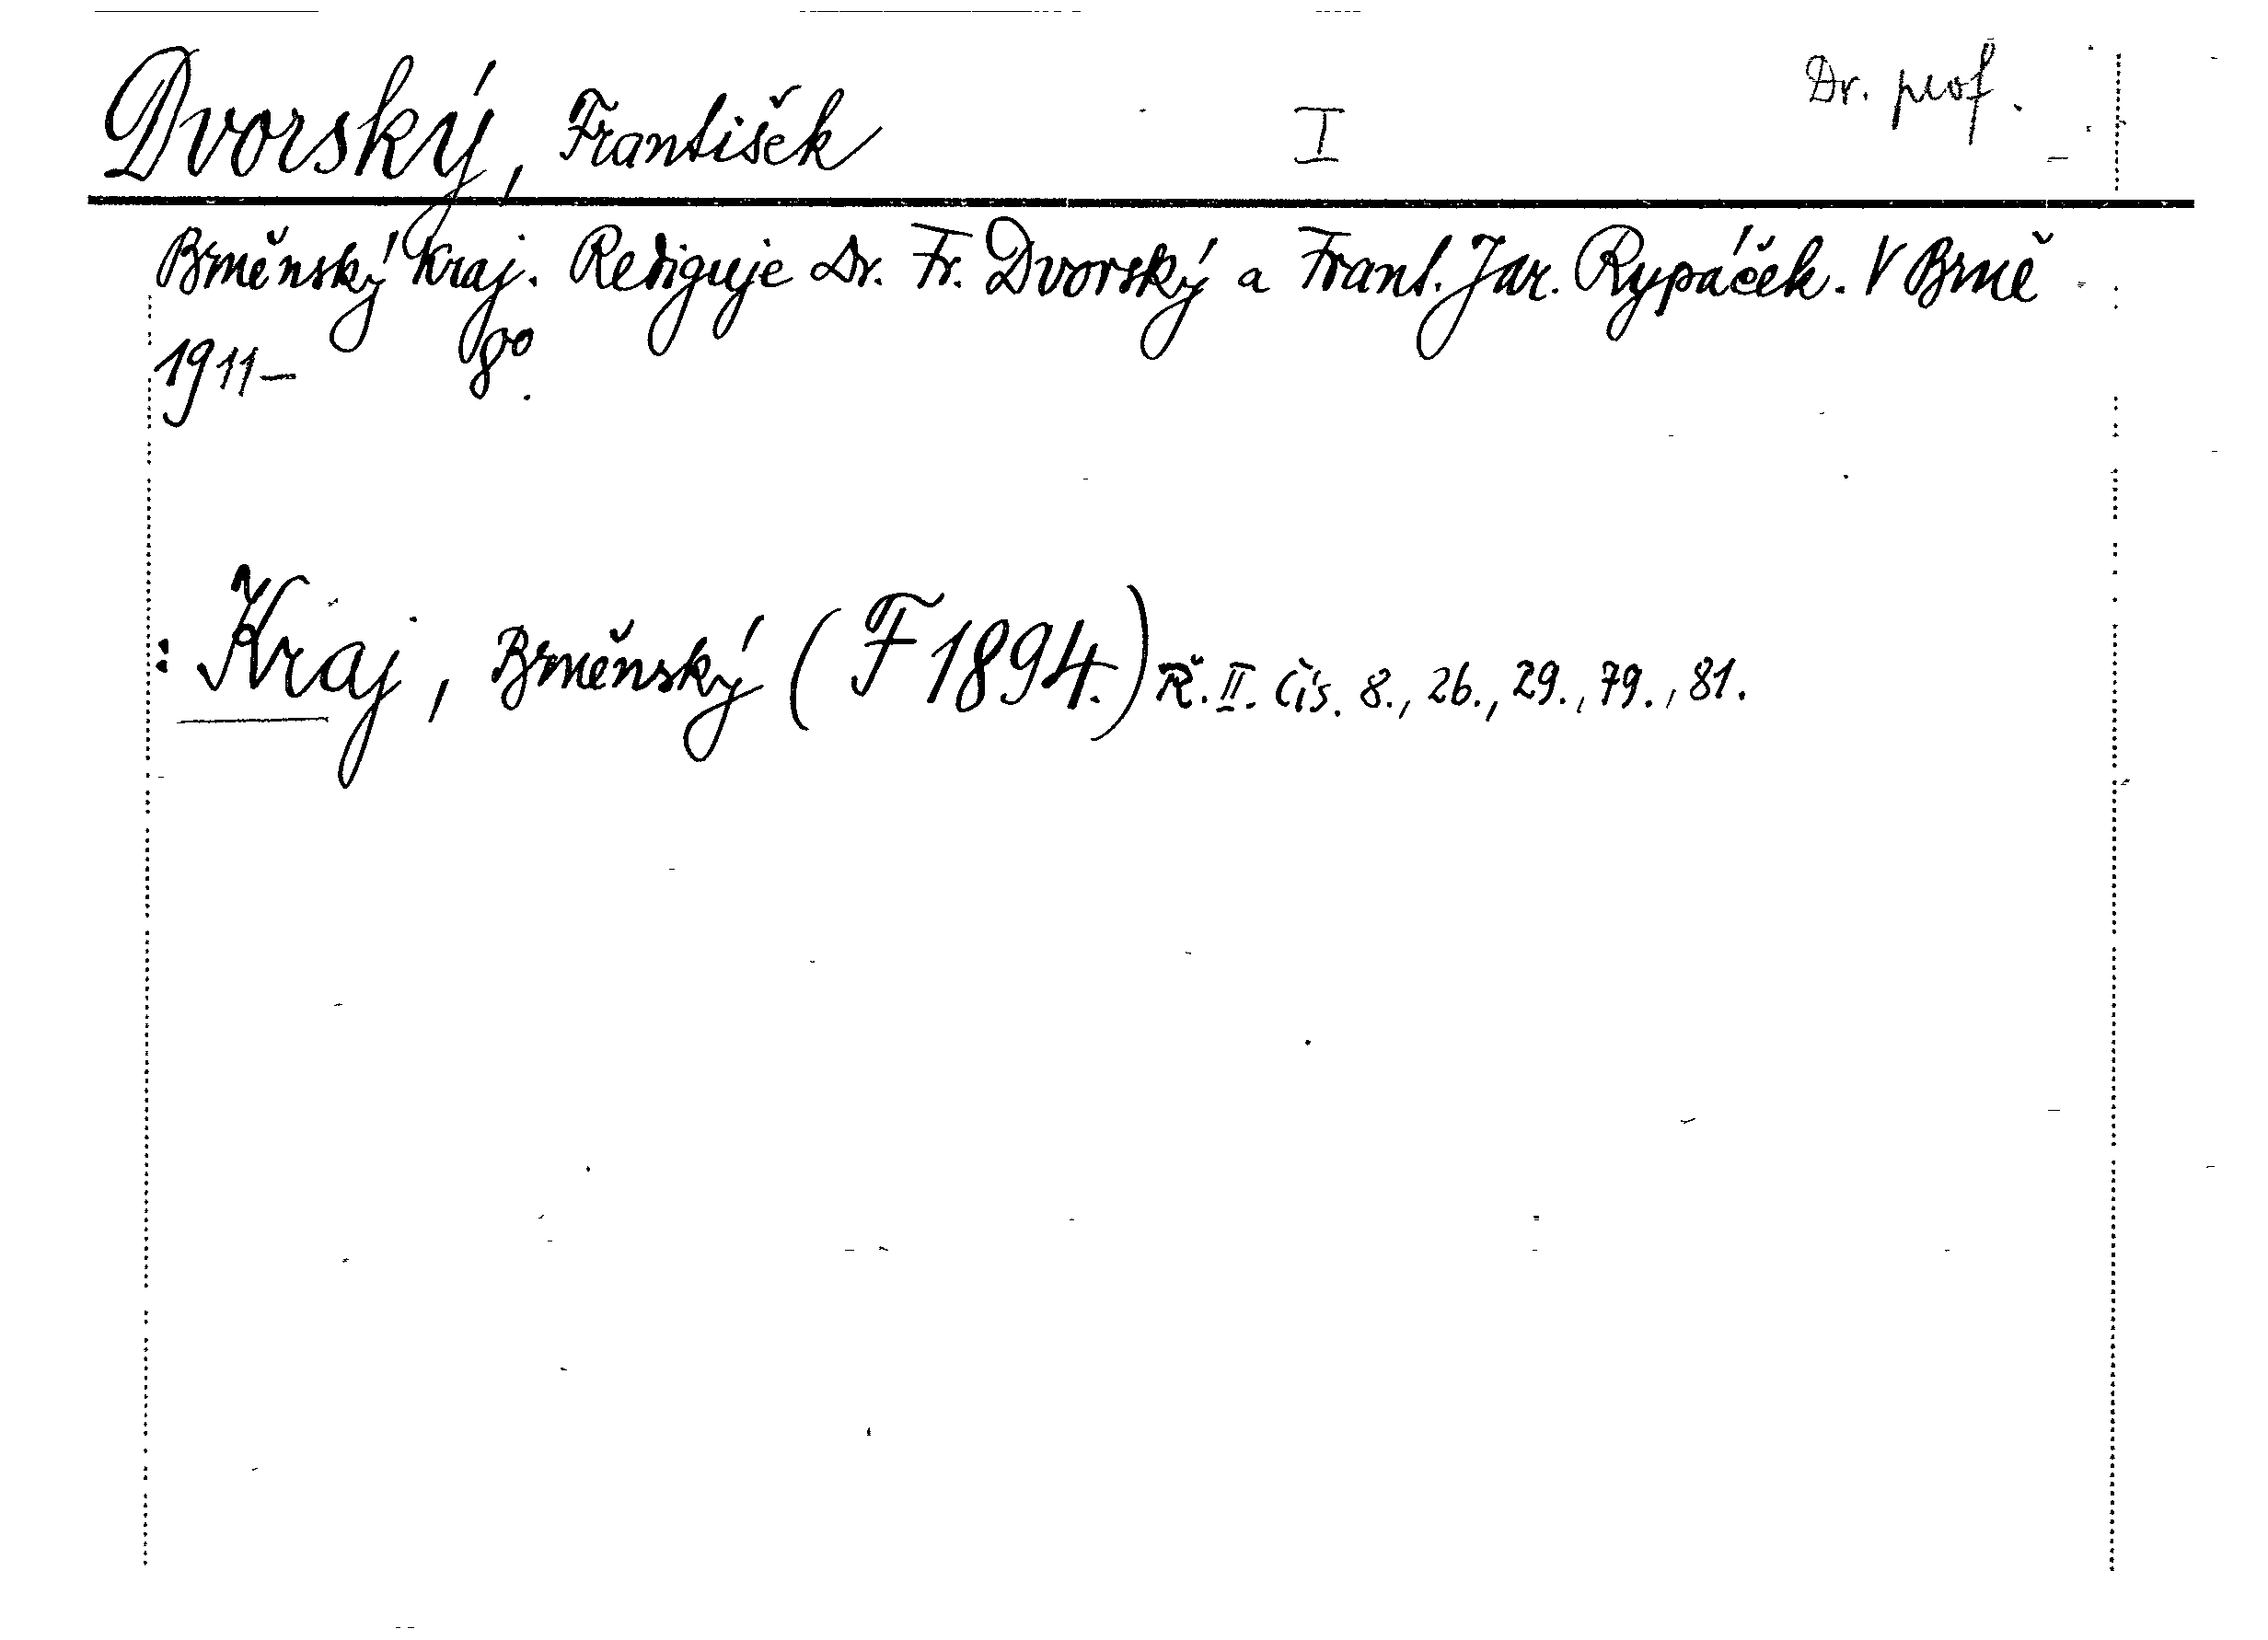 Dvorský, František I Dr. prof.
Brněnský kraj. Rediguje Dr. Fr. Dvorský a Frant. Jar. Rypáček. V Brně
1911– 8°.
: Kraj, Brněnský (F 1894.) Ř. II. Čís. 8., 26., 29., 79., 81.